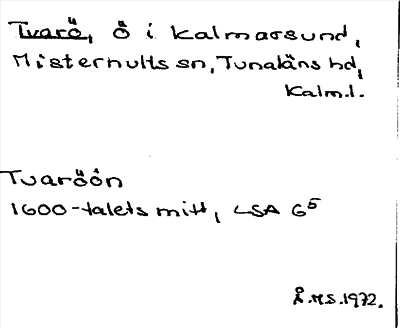 Tvarö, ö i Kalmarsund,
Misterhults sn, Tunaläns hd,
Kalm.l.
Tvaröön
1600-talets mitt, LSA G5
Å.M.S. 1972.